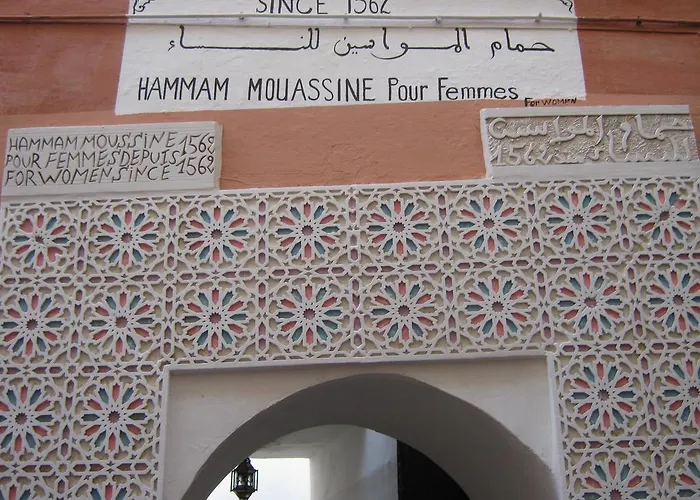 SINCE 1562
حمام المواسين للنساء
HAMMAM MOUASSINE Pour Femmes
For WOMEN
HAMMAM MOUSSINE 1562
POUR FEMMES DEPUIS 1562
FOR WOMEN SINCE 1562
1562